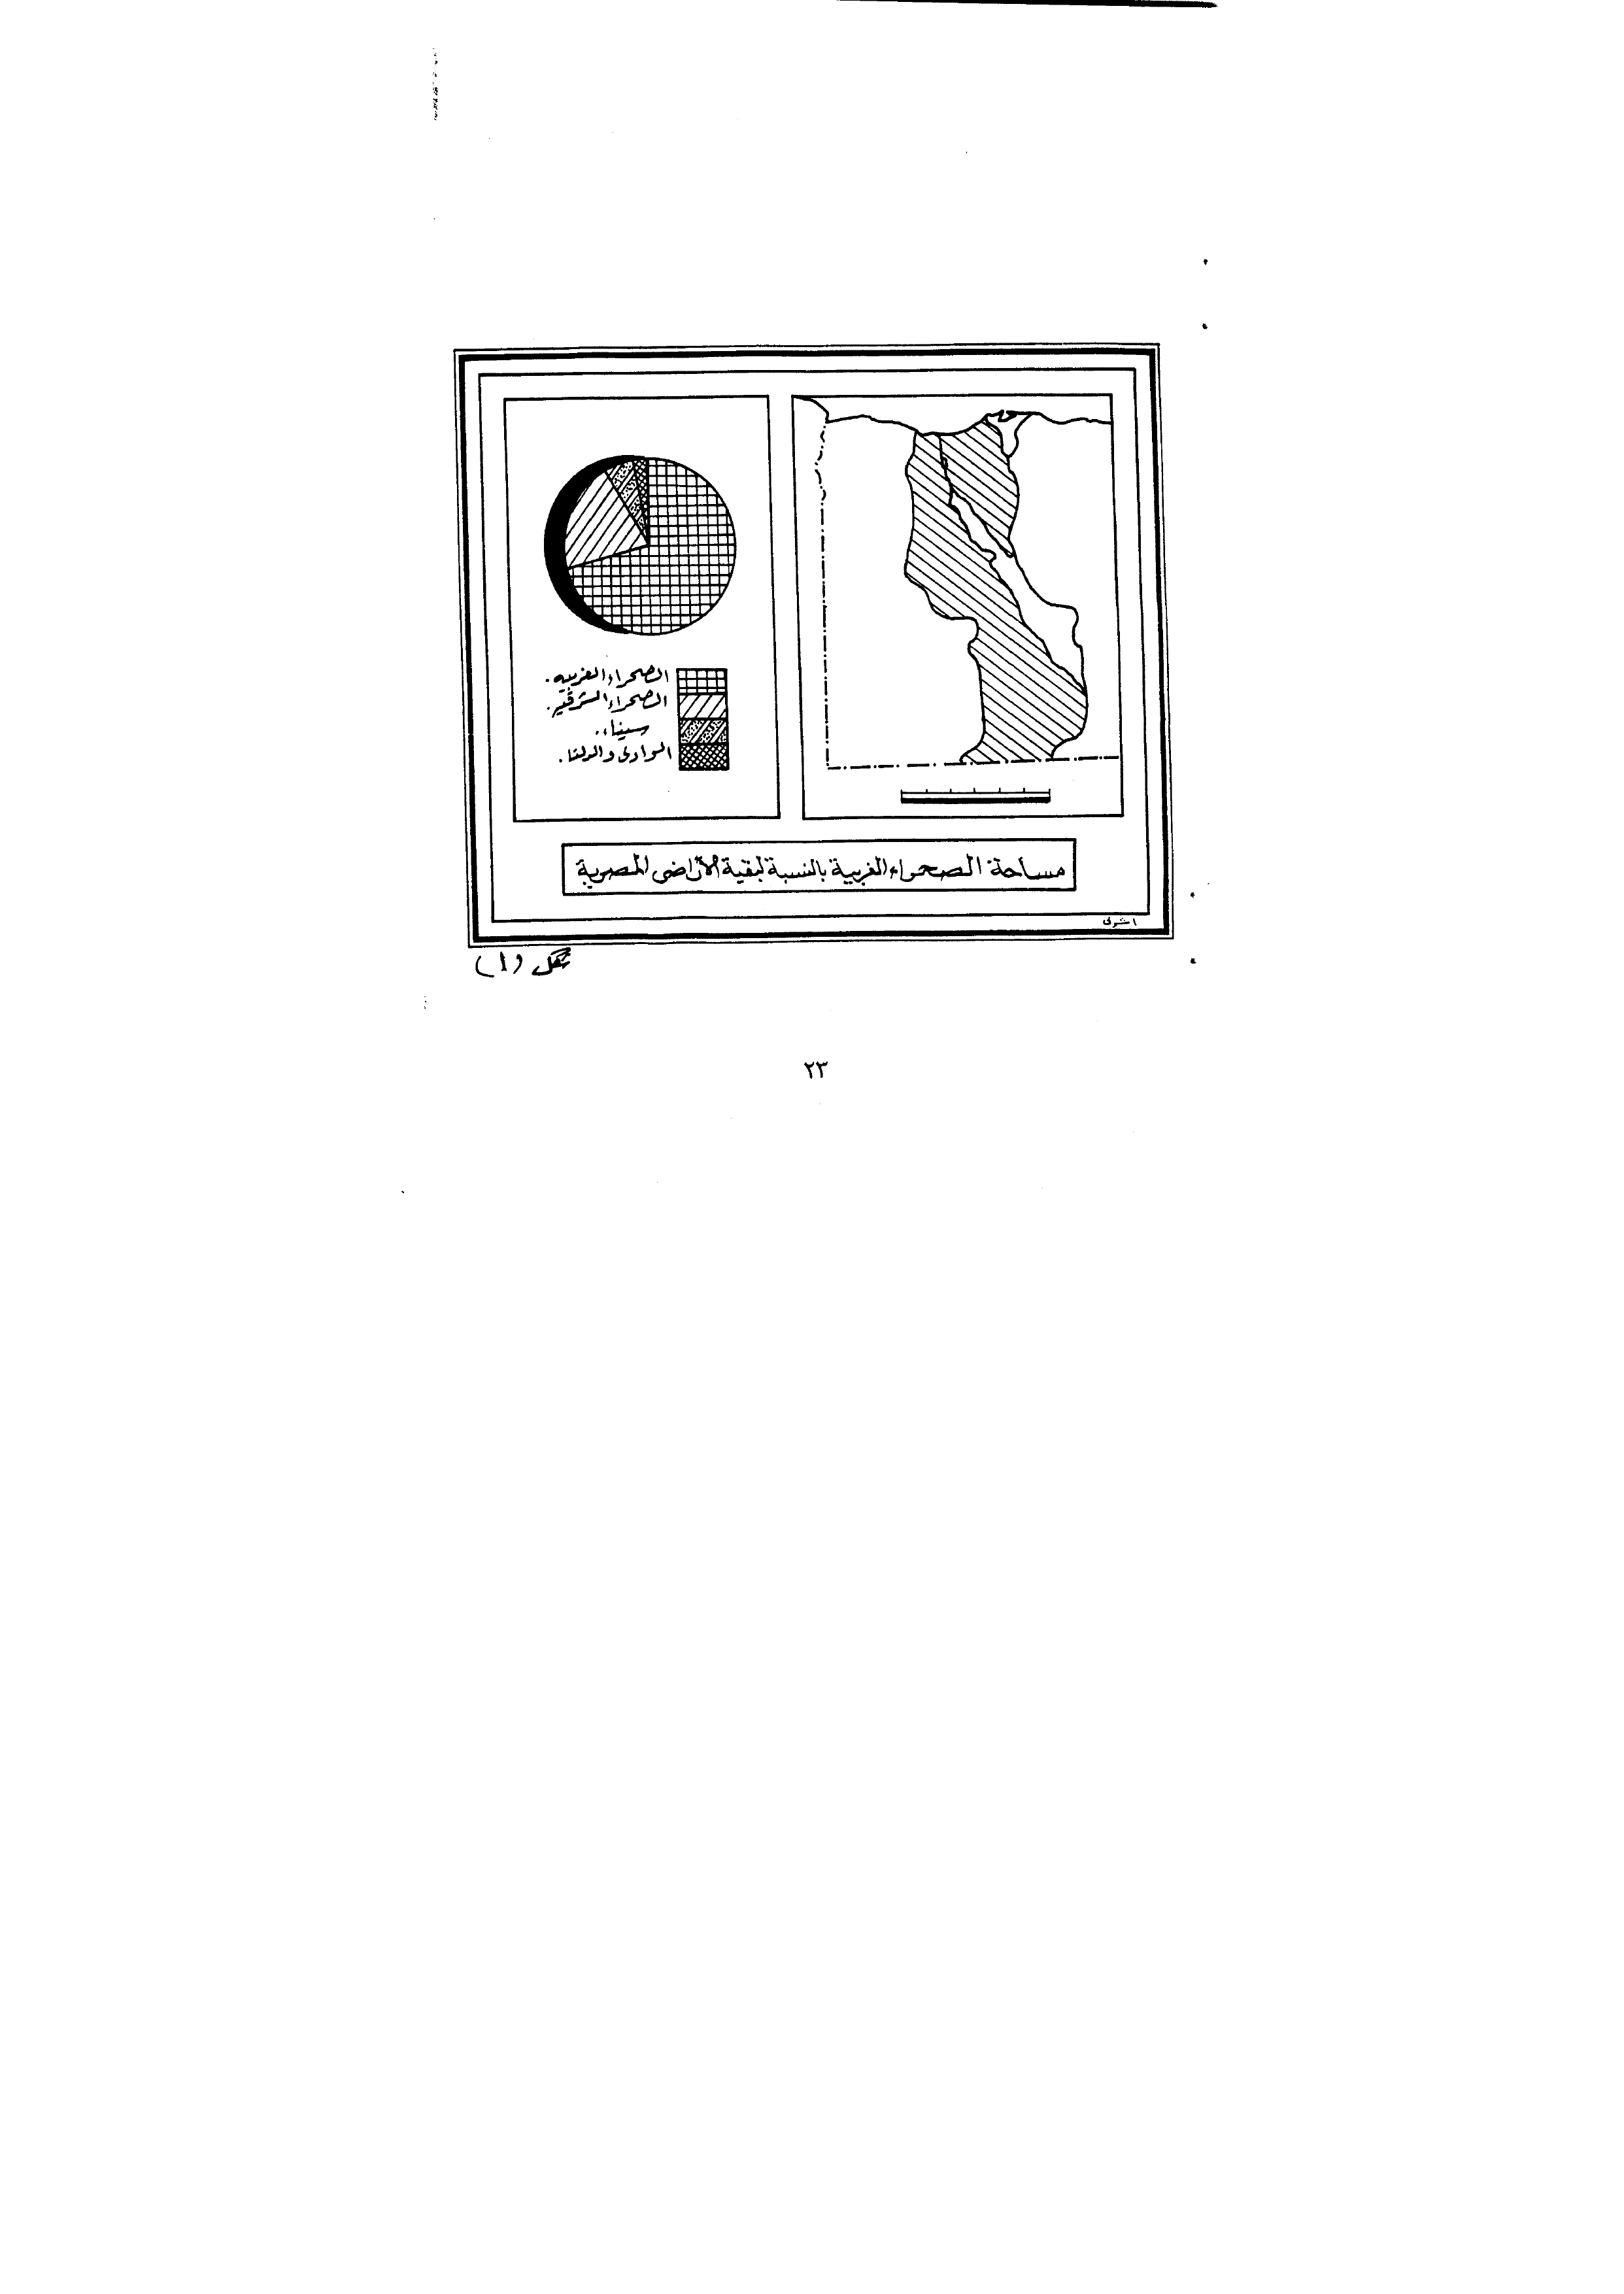 الصحراء الغربيه.
الصحراء الشرقيه.
سيناء.
الوادى والدلتا.
مساحة الصحراء الغربية بالنسبة لبقية الأراضى المصرية
شكل (١)
٢٣